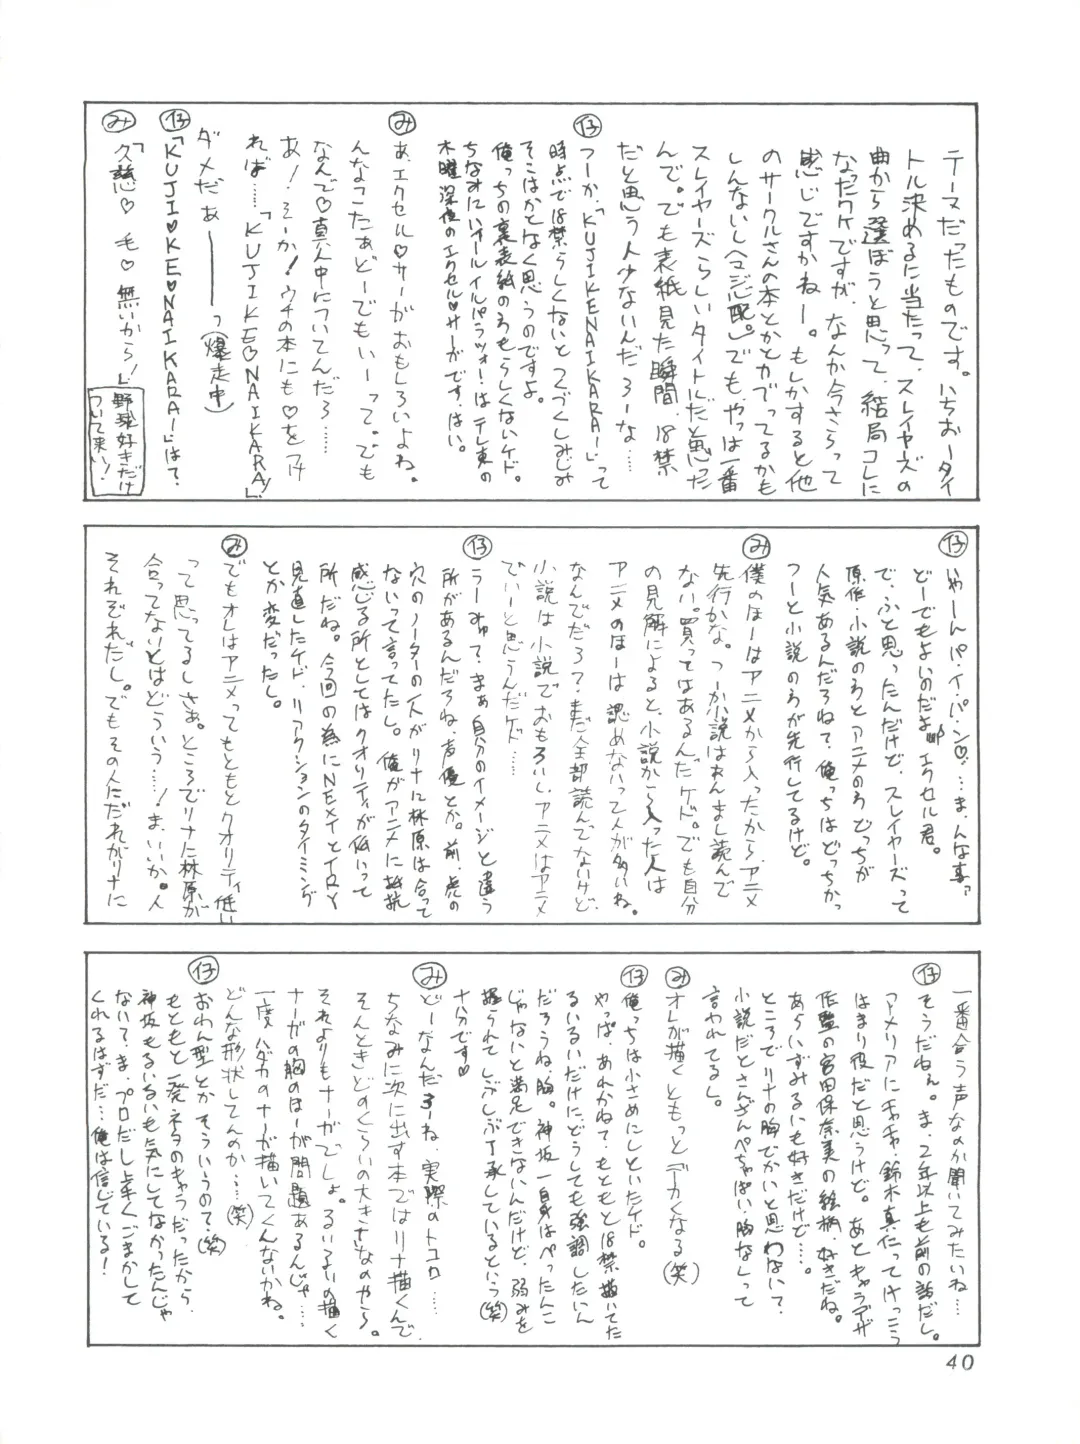 テーマだったものです。いちおータイ
トル決めるに当たって、スレイヤーズの
曲から選ぼうと思って、結局コレに
なったワケですが、なんか今さらって
感じですかねー。もしかすると他
のサークルさんの本とかとカブってるかも
しんないし(マジ心配。)でも、やつは一番
スレイヤーズらしいタイトルだと思った
んで。でも表紙見た瞬間、18禁
だと思う人少ないんだろーな……
仔 つーか、「KUJIKENAIKARA!」って
時点で18禁らしくないとつくづくしみじみ
そこはかとなく思うのですよ。
俺っちの裏表紙のわもらしくないケド。
ちなみにイルイルイルパラッツォ!はテレ東の
木曜深夜のエクセル♡サーガです、はい。
み あ、エクセル♡サーガおもしろいよね。
んなこたぁどーでもいーって。でも
なんで♡真ん中についてんだろ……
あ!そーか!ウチの本にも♡をつけ
れば……「KUJIKE♡NAIKARA!」
ダメだぁ―――っ(爆走中)
仔 「KUJI♡KE♡NAIKARA!」は?
み 「久慈♡毛♡無いから!」
野球好きだけ
ついて来い!
仔 いやーんパ・イ・パ・ン♡……ま、んな事ァ
どーでもよいのだよ エクセル君。
で、ふと思ったんだけど、スレイヤーズって
原作・小説のわとアニメのわどっちが
人気あるんだろねて、俺っちはどっちかっ
つーと小説のわが先行してるけど。
み 僕のほーはアニメから入ったから、アニメ
先行かな。つーか小説はあんまし読んで
ない。買ってはあるんだケド。でも自分
の見解によると、小説から入った人は
アニメのほーは認めないって人が多いね。
なんでだろ?まだ全部読んでないけど、
小説は小説でおもろいし、アニメはアニメ
でいーと思うんだケド……
仔 うーみゅ?まぁ自分のイメージと違う
所があるんだろね、声優とか。前、虎の
穴のノーターの人がリナに林原は合って
ないって言ってたし。俺がアニメに抵抗
感じる所としてはクオリティが低いって
所だね。今回の為にNEXTとTRY
見直したケド、リアクションのタイミング
とか変だったし。
み でもオレはアニメってもともとクオリティ低い
って思ってるしさぁ。ところでリナに林原が
合ってないとはどういう……!ま、いいか。人
それぞれだし。でもその人にだれがリナに
一番合う声なのか聞いてみたいね…
仔 そうだねぇ。ま、2年以上も前の話だし。
アメリアにチャチャ・鈴木真仁ってけっこう
はまり役だと思うけど。あとキャラデザ
作監の宮田保奈美の絵柄、好きだね。
あらいずみるいも好きだけど…。
ところでリナの胸でかいと思わない?
小説だとさんざんペちゃぱい・胸なしって
言われてるし。
み オレが描くともっとデーカくなる(笑)
仔 俺っちは小さめにしといたケド。
やっぱ、あれかねて、もともと18禁描いてた
るいるいだけに、どうしても強調したいん
だろうね、胸。神坂一自身はぺったんこ
じゃないと満足できないんだけど、弱みを
握られてしぶしぶ了承しているという(笑)
十分です♡
み どーなんだろーね、実際のトコロ……
ちなみに次に出す本ではリナ描くんで、
そんときどのくらいの大きさなのやら。
それよりもナーガでしょ。るいるいの描く
ナーガの胸のほーが問題あるんじゃ……
一度ハダカのナーガ描いてくんないかね。
どんな形状してんのか……(笑)
仔 おわん型とかそういうので?(笑)
もともと一発ネタのキャラだったから、
神坂もるいるいも気にしてなかったんじゃ
ない?ま、プロだし上手くごまかして
くれるはずだ…俺は信じている!
40